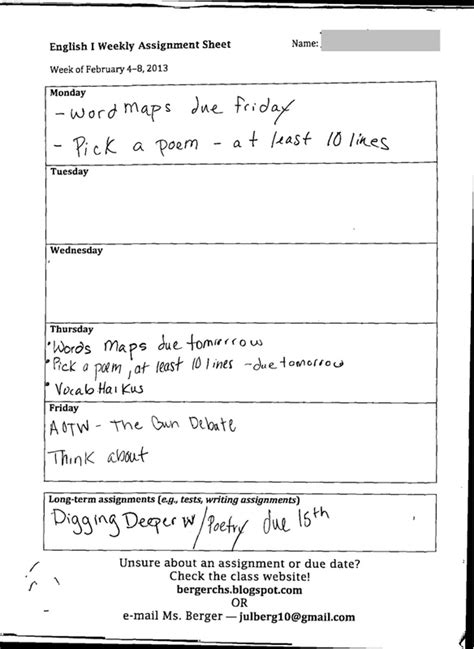 English I Weekly Assignment Sheet Name:
Week of February 4–8, 2013
Monday
- Word maps due friday
- Pick a poem - at least 10 lines
Tuesday
Wednesday
Thursday
• Words Maps due tomorrow
• Pick a poem, at least 10 lines - due tomorrow
• Vocab Haikus
Friday
AOTW - The Gun Debate
Think about
Long-term assignments (e.g., tests, writing assignments)
Digging Deeper w/ Poetry due 15th
Unsure about an assignment or due date?
Check the class website!
bergerchs.blogspot.com
OR
e-mail Ms. Berger — julberg10@gmail.com